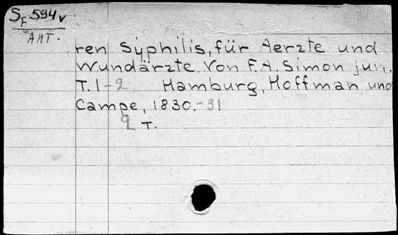 Sf 594v
АНТ.
ren Syphilis, für Aerzte und
Wundärzte. Von F.A. Simon jun.
T. 1-2 Hamburg, Hoffman und
Campe, 1830.-31
2 T.